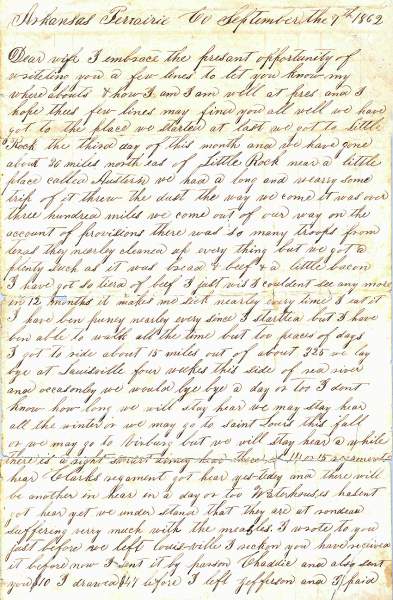 Arkansas Perrairie Co September the 7th 1862
Dear wife I embrace the presant opportunity of
writeing you a few lines to let you know my
whereabouts & how I am I am well at pres and I
hope thees few lines may find you all well we have
got to the place we started at last we got to Little
Rock the third day of this month and we have gone
about 20 miles north eas of Little Rock near a little
place called Austern we had a long and wearry some
trip of it threw the dust the way we come it was over
three hundrea miles we come out of our way on the
account of provisions there was so many troops from
texas they nearley cleaned up every thing but we got a
plenty such as it was bread & beef & a little bacon
I have got so tierd of beef I just wis I couldent see any more
in 12 months it makes me sick nearley every time I eat it
I have ben puney nearley ever since I startted but I have
ben able to walk all the time but too peaces of days
I got to ride about 15 miles out of about 325 we lay
bye at Lauisville four wekes this side of rea river
and occasonley we would lye bye a day or too I dont
know how long we will stay hear we may stay hear
all the winter or we may go to saint Louis this fall
or we may go to virbeny but we will stay hear a while
there is a right of 14 or 15
hear Clarks regament got hear yes-teday and there will
be another in hear in a day or too Waterhouses hasent
got hear yet we under stand that they are at rondeau
suffering verry much with the measles I wrote to you
just before we left louis-ville I reckon you have received
it before now I sent it by parson Chaddic and also sent
you $10 I drawed $47 before I left Jefferson and I paid